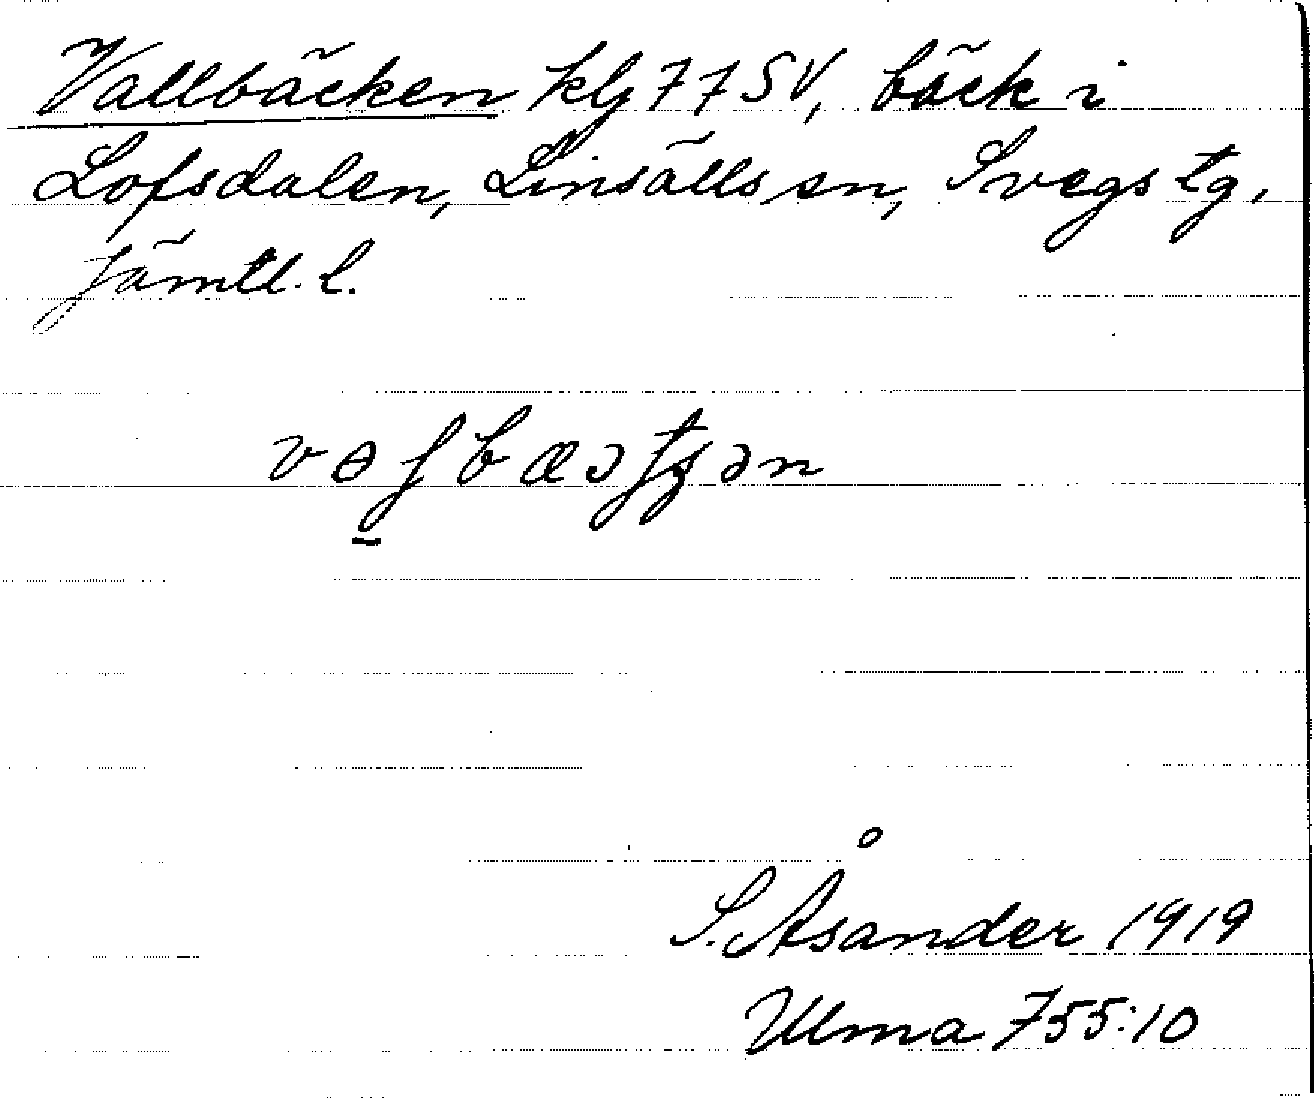 Vallbäcken klj 77 SV, bäck i
Lofsdalen, Linsälls sn, Svegs tg,
Jämtl. l.
S. Åsander 1919
Ulma 755:10